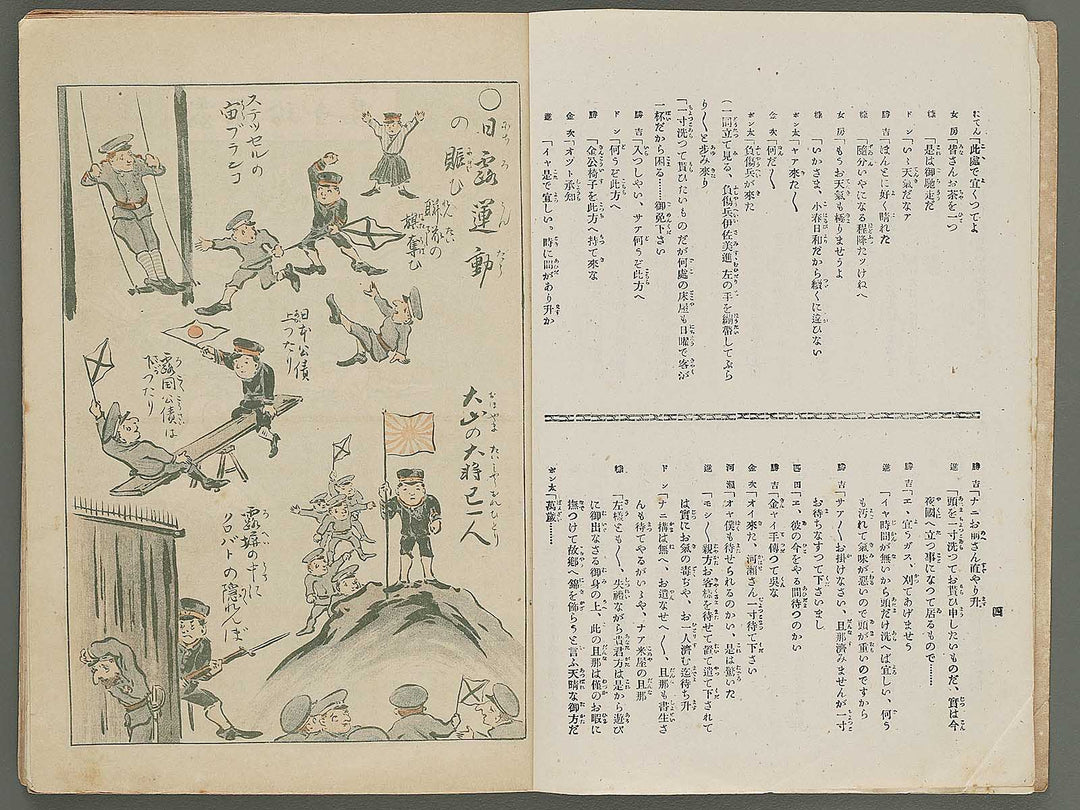 にてん「此處で宜くつてよ
女房「皆さんお茶を一つ
様「是は御馳走だ
ドン「いゝ天氣だなア
勝吉「ほんとに好く晴れた
様「隨分いやになる程降たッけねへ
女房「もうお天氣も極りませうよ
様「いかさま、小春日和だから續くに違ひない
ポン太「ヤア來た〳〵
金次「何だ〳〵
ポン太「負傷兵が來た
(一同立て見る、負傷兵伊佐美進、左の手を繃帶してぶら
り〳〵と歩み來り
「一寸洗つて貰ひたいものだが何處の床屋も日曜で客が
一杯だから困る……御免下さい
勝吉「入つしやい、サア何うぞ此方へ
ドン「何うぞ此方へ
勝「金公椅子を此方へ持て來な
金次「オツト承知
進「イヤ是で宜しい。時に間があり升か
四
勝吉「ナニお前さん直やり升
進「頭を一寸洗つてお貰ひ申したいものだ、實は今
夜國へ立つ事になつて居るもので……
勝吉「エ、宜うガス、刈てあげませう
進「イヤ時間が無いから頭だけ洗へば宜しい、何う
も汚れて氣味が惡いので頭が重いのですから
勝吉「サア〳〵お掛けなさい、旦那濟みませんが一寸
お待ちなすつて下さいまし
「エ、彼の今をやる間待つのかい
勝吉「金ャイ手傳つて吳な
金次「オイ來た、河瀬さん一寸待て下さい
河瀬「オヤ僕も待せられるのかい、是は驚いた
進「モシ〳〵親方お客樣を待せて置て遣て下されて
は實にお氣の毒ぢや、お一人濟む迄待ち升
ドン「ナニ搆は無へ、お遣なせへ〳〵、旦那も書生さ
んも待てやるがいゝや、ナア米屋の旦那
様「左樣とも〳〵、失禮ながら貴君方は是から遊び
に御出なさる御身の上、此の旦那は僅のお暇に
撫つけて故鄕へ錦を飾らうと言ふ天晴な御方だ
ポン太「萬歲……
〇日露運動
の賑ひ
聯隊の
旗奪ひ
ステツセルの
宙ブランコ
日本公債
上つたり
露国公債は
下つたり
大山の大将己一人
露探の中に
クロバトの隠れんぼ